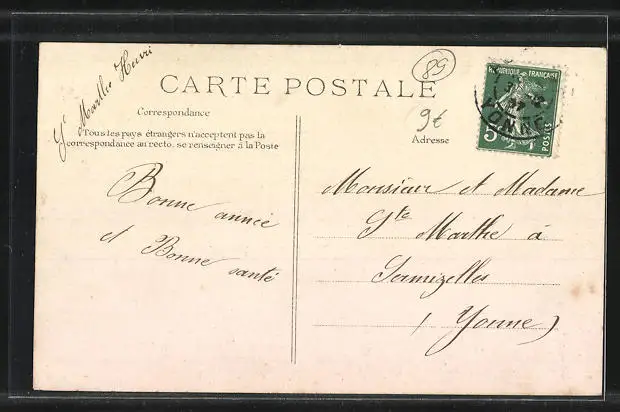 Gte Marthe Henri
89
CARTE POSTALE
9€
Correspondance
Tous les pays étrangers n'acceptent pas la
correspondance au recto, se renseigner à la Poste
Adresse
REPUBLIQUE FRANÇAISE
5
POSTES
YONNE
Bonne année
et Bonne santé
Monsieur et Madame
Gte Marthe à
Sermizelles
(Yonne)